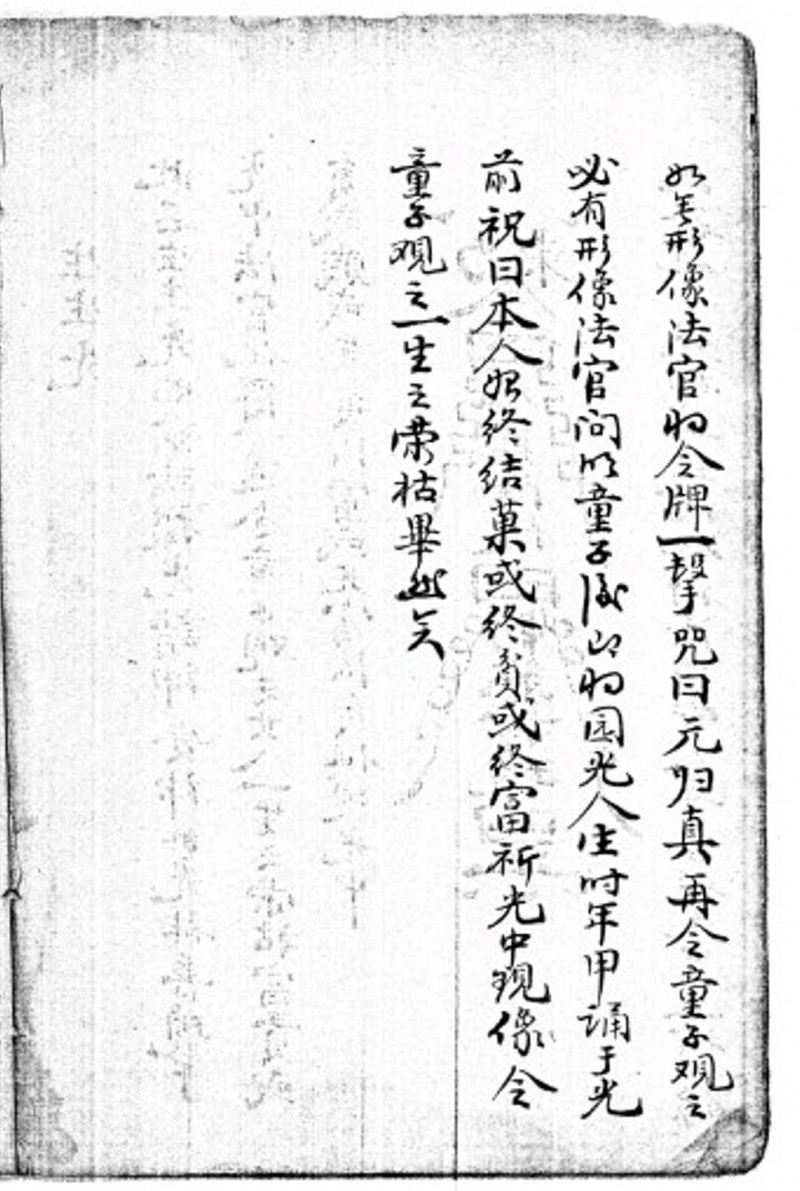 如无形像法官将令牌一击咒曰元归真再令童子观之
必有形像法官问明童子后即将圆光人生时年甲诵于光
前祝曰本人始终结菓或终贫或终富祈光中现像令
童子观之一生之荣枯畢矣